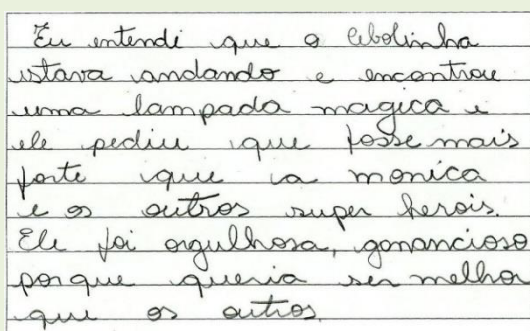 Eu entendi que o Cebolinha
estava andando e encontrou
uma lampada magica e
ele pediu que fosse mais
forte que a monica
e os outros super herois.
Ele foi orgulhosa, gonancioso
porque queria ser melhor
que os outros.